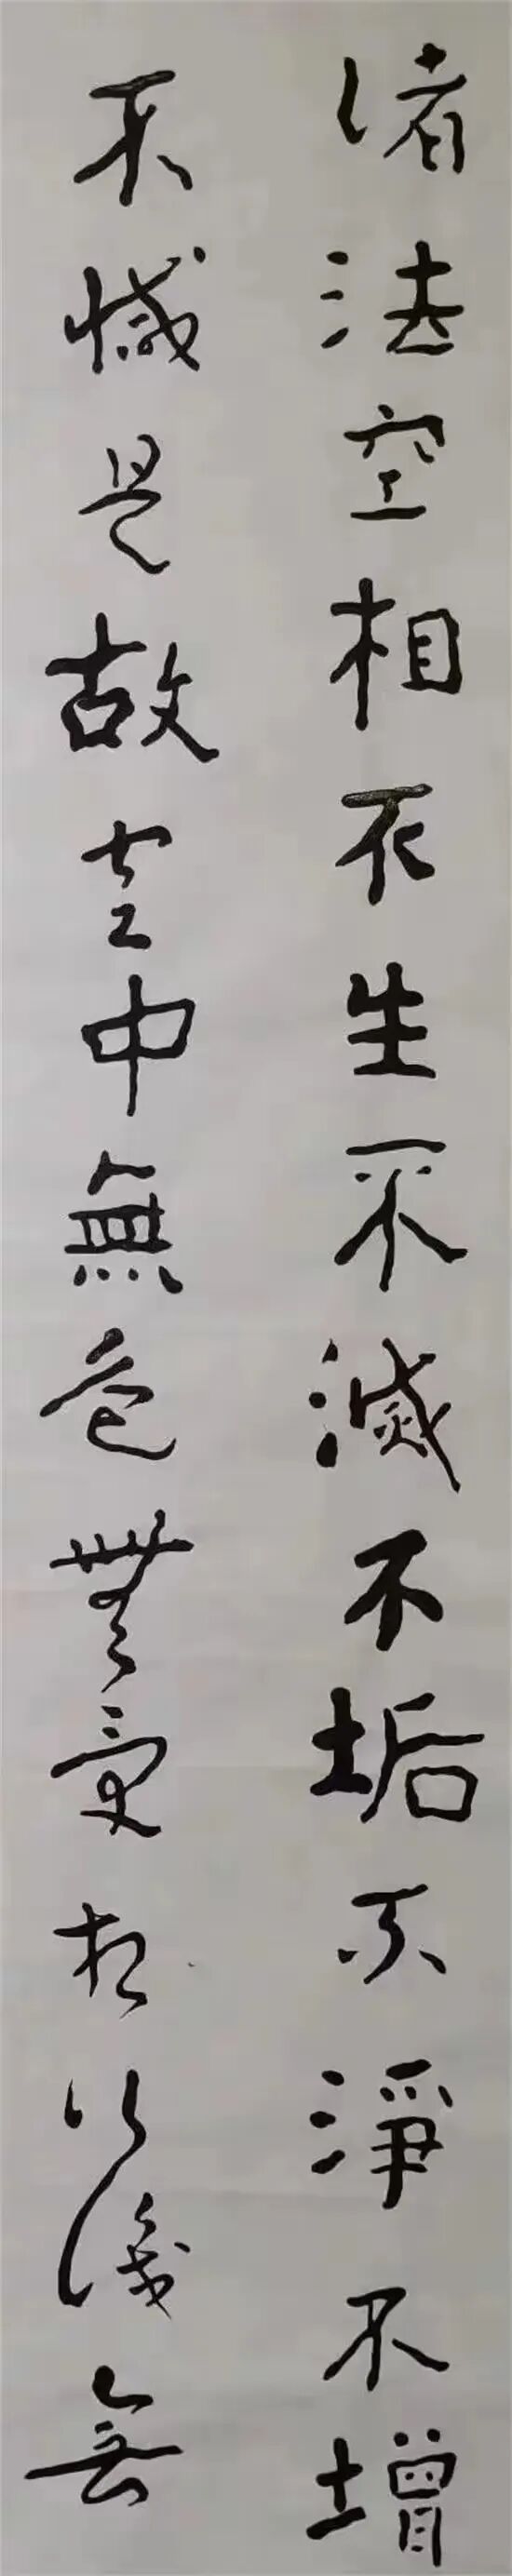 諸法空相不生不滅不垢不淨不增
不減是故空中無色無受想行識無